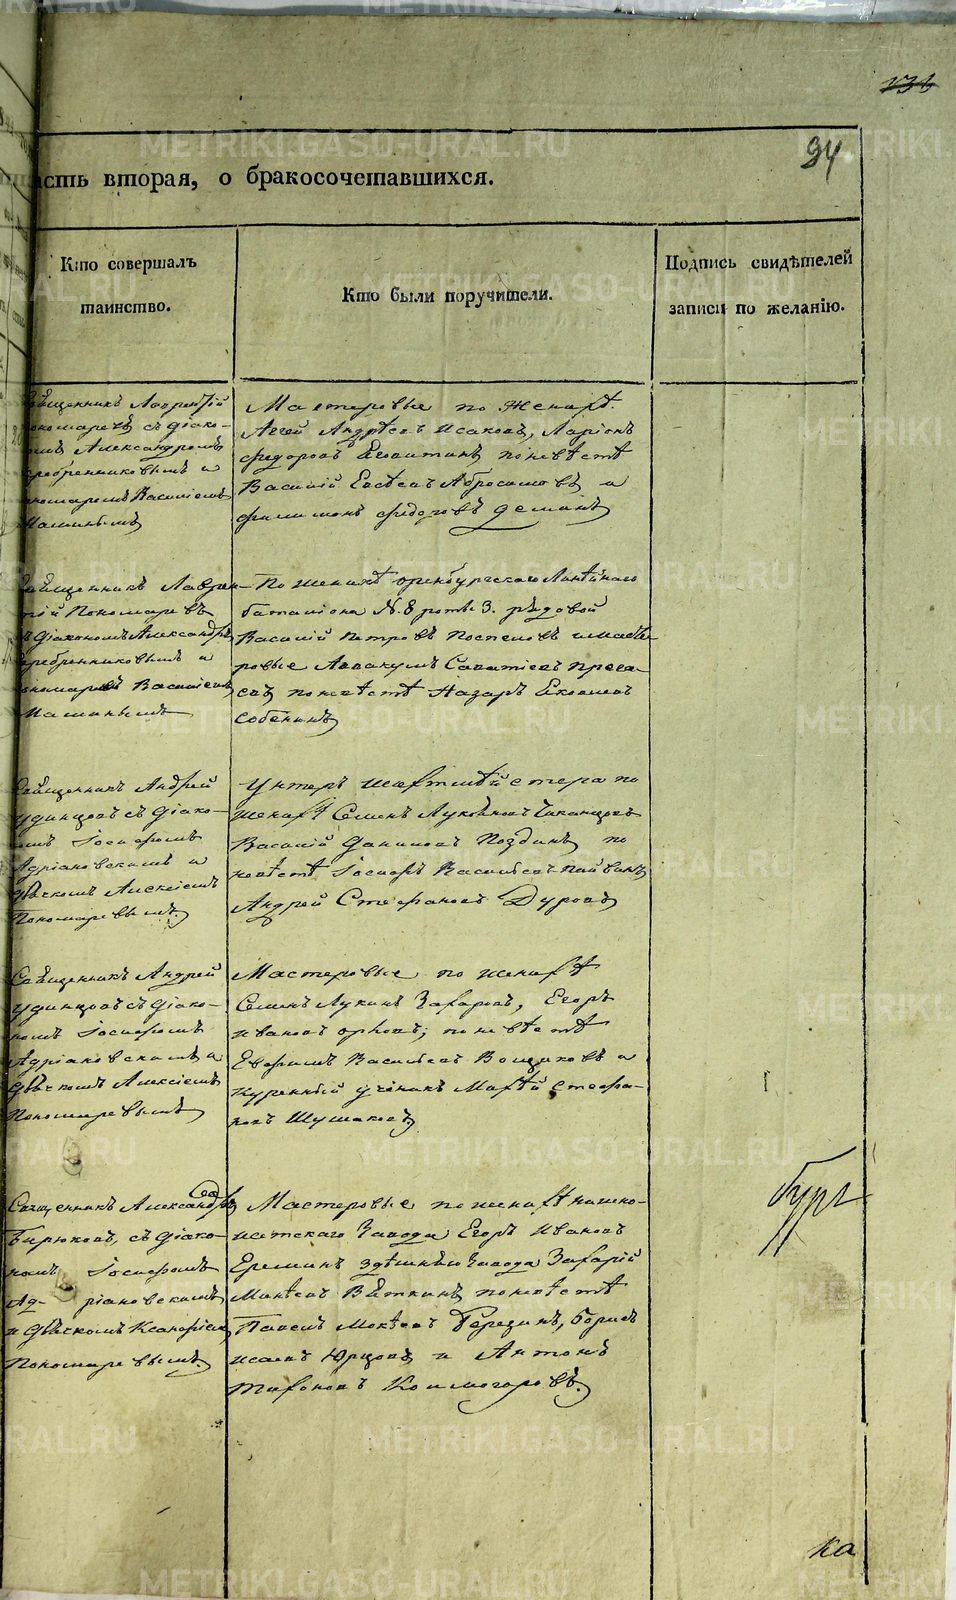 94
часть вторая, о бракосочетавшихся.
Кто совершалъ
таинство.
Кто были поручители.
Подпись свидѣтелей
записи по желанію.
Священникъ Лаврентій
Пономаревъ съ діако-
номъ Александромъ
Серебренниковымъ и
пономаремъ Василіемъ
Мастеровые по женихѣ
Аггей Андреевъ Исаковъ, Ларіонъ
Федоровъ по невѣстѣ
Василій Евсѣевъ Абросимовъ и
Филимонъ Федоровъ Деминъ
Священникъ Лаврен-
тій Пономаревъ
съ Діакономъ Александромъ
Серебренниковымъ и
пономаремъ Василіемъ
По женихѣ Оренбургскаго Линѣйнаго
баталіона N. 8 роты 3. рядовой
Василій Петровъ Поспеловъ и масте-
ровые Аввакумъ Саватіевъ
по невѣстѣ Назаръ Яковлевъ
Собенинъ
Священникъ Андрей
Удинцовъ съ Діако-
номъ Іосифомъ
Адріановскимъ и
Дьячкомъ Алексіемъ
Пономаревымъ.
Унтеръ шахтмейстера по
женихѣ Семенъ
Василій Даниловъ Поздинъ по
невѣстѣ Іосифъ Васильевъ
Андрей Стефановъ Дуровъ
Священникъ Андрей
Удинцовъ съ Діако-
номъ Іосифомъ
Адріановскимъ и
Дьячкомъ Алексіемъ
Пономаревымъ
Мастеровые по женихѣ
Семенъ Лукинъ Захаровъ, Егоръ
Ивановъ Орловъ; по невѣстѣ
Ефримъ Васильевъ Вощиковъ и
куренный ученикъ Матѳѣй Стефа-
новъ Шушаковъ
Священникъ Александръ
Бирюковъ, съ Діако-
номъ Іосифомъ
Ад- ріановскимъ
и Дьячкомъ
Пономаревымъ.
Мастеровые по женихѣ
Завода Егоръ Ивановъ
Ереминъ здѣшняго Завода Захарій
Мокѣевъ Вяткинъ по невѣстѣ
Павелъ Мокѣевъ Березинъ, Борисъ
Исаевъ Юрцовъ и Антонъ
Тихоновъ Колмогоровъ.
бург
ка
METRIKI.GASO-URAL.RU